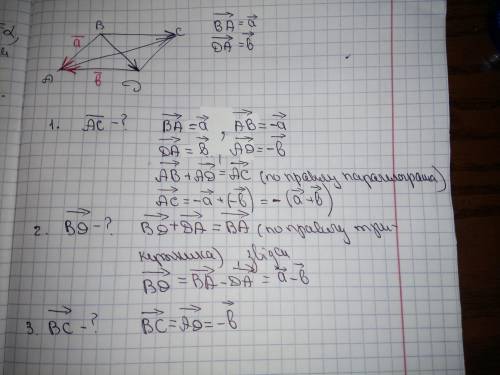 B C
a⃗
A b⃗ D
BA⃗ = a⃗
DA⃗ = b⃗
1. AC⃗ - ? BA⃗ = a⃗ , AB⃗ = -a⃗
DA⃗ = b⃗ AD⃗ = -b⃗
AB⃗ + AD⃗ = AC⃗ (по правилу паралелограма)
AC⃗ = -a⃗ + (-b⃗) = -(a⃗ + b⃗)
2. BD⃗ - ? BD⃗ + DA⃗ = BA⃗ (по правилу три-
кутника) звідси
BD⃗ = BA⃗ - DA⃗ = a⃗ - b⃗
3. BC⃗ - ? BC⃗ = AD⃗ = -b⃗